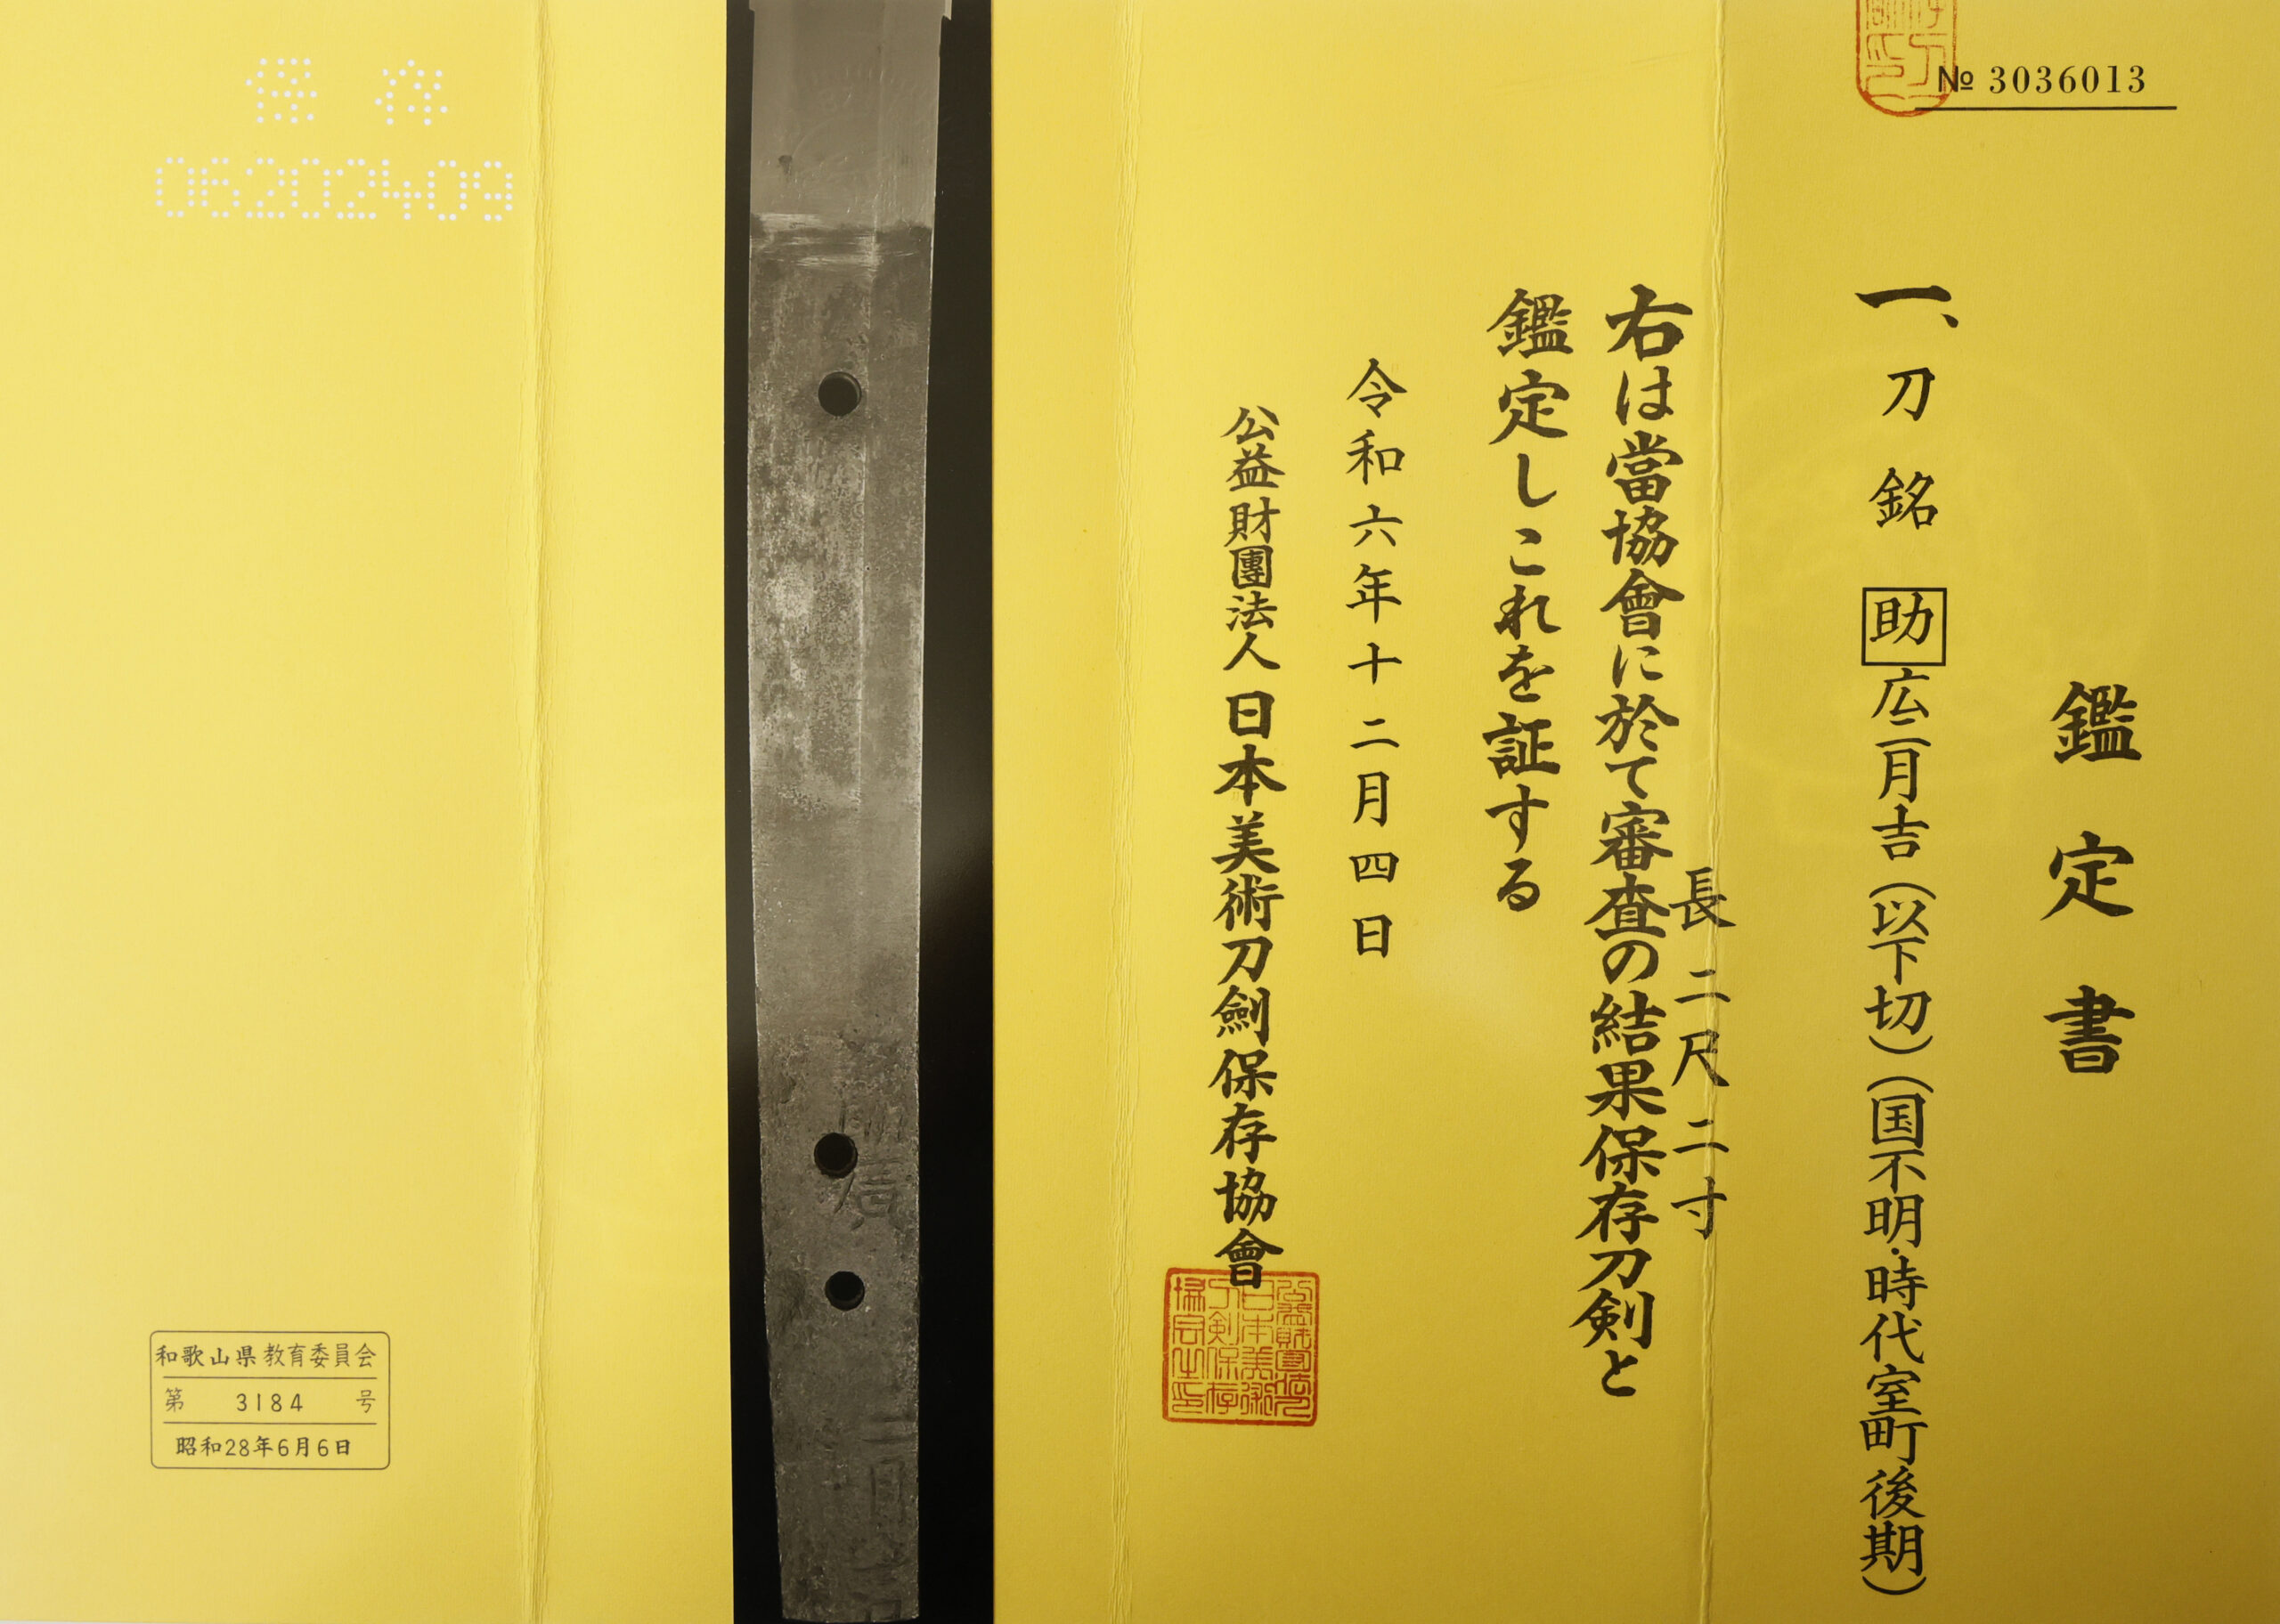 № 3036013
鑑定書
一、刀 銘 助広二月吉(以下切)(国不明・時代室町後期)
長 二尺二寸
右は當協會に於て審査の結果保存刀剣と
鑑定しこれを証する
令和六年十二月四日
公益財團法人日本美術刀劍保存協會
保存
06202409
和歌山県教育委員会
第 3184 号
昭和28年6月6日